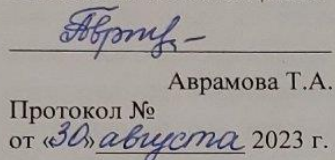 Аврамова Т.А.
Протокол №
от «30» августа 2023 г.